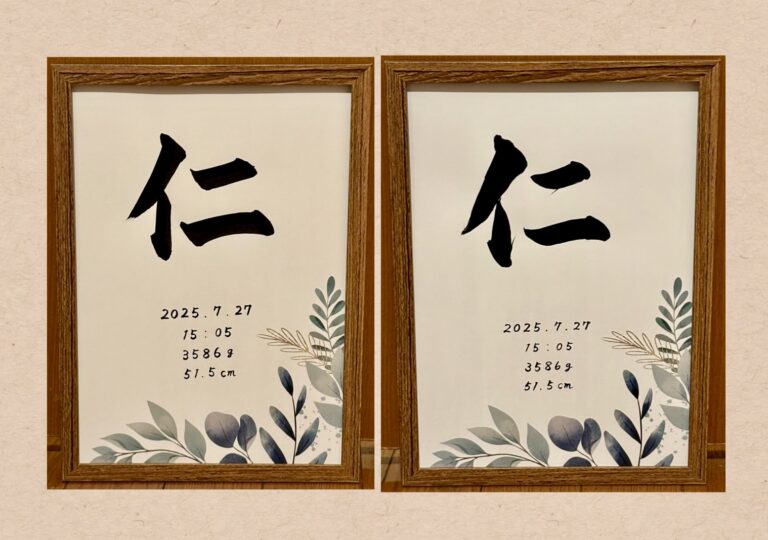 仁
2025.7.27
15:05
3586g
51.5cm
仁
2025.7.27
15:05
3586g
51.5cm